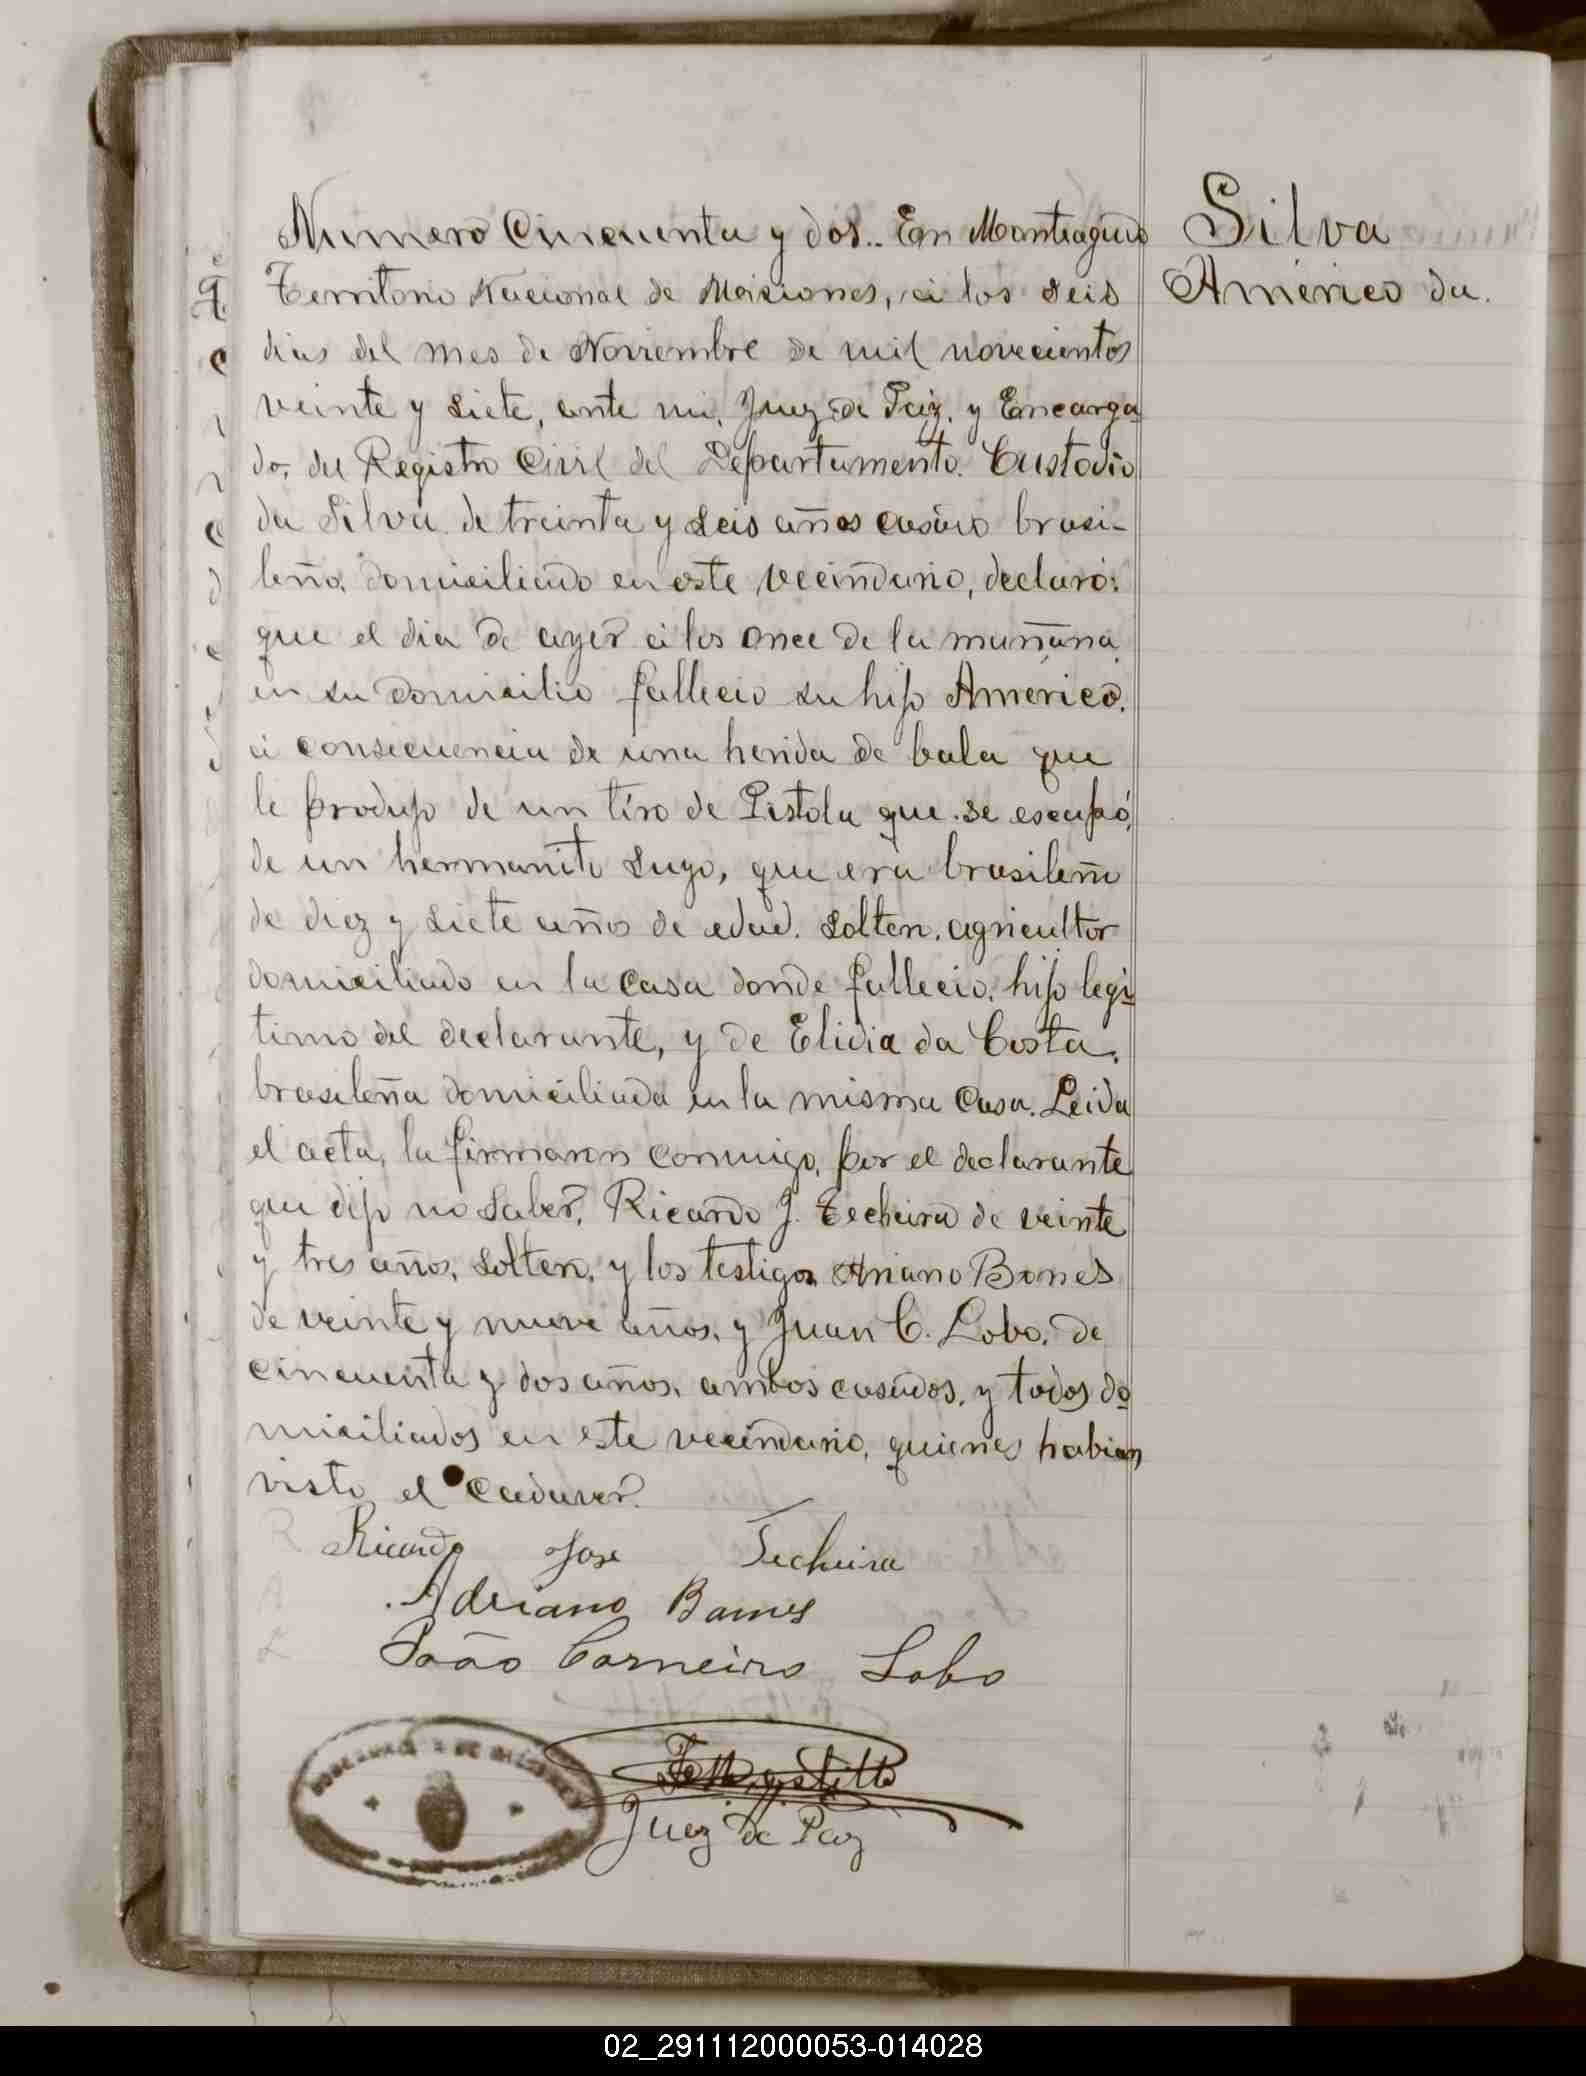 Silva
Américo da.
Numero Cincuenta y dos.. En Monteagudo
Territorio Nacional de Misiones, a los seis
dias del mes de Noviembre de mil novecientos
veinte y siete, ante mi, Juez de Paiz. y Encarga
do, del Registro Civil del Departamento. Custodio
da Silva de treinta y seis años casado brasi-
leño, domiciliado en este vecindario, declaró:
que el dia de ayer a las once de la mañana
en su domicilio fallecio su hijo Américo.
a consecuencia de una herida de bala que
le produjo de un tiro de Pistola que se escapó,
de un hermanito suyo, que era brasileño
de diez y siete años de edad. soltero, agricultor
domiciliado en la casa donde fallecio, hijo legi
timo del declarante, y de Elidia da Costa,
brasileña domiciliada en la misma casa. Leida
el acta, la firmaron conmigo, por el declarante
que dijo no saber, Ricardo J. Techeira de veinte
y tres años, soltero, y los testigos Ariano Bones
de veinte y nueve años, y Juan C. Lobo, de
cincuenta y dos años, ambos casados, y todos do
miciliados en este vecindario, quienes habian
visto el cadaver.
Ricardo Jose Techeira
Adriano Bones
João Carneiro Lobo
Juez de Paz
02_291112000053-014028